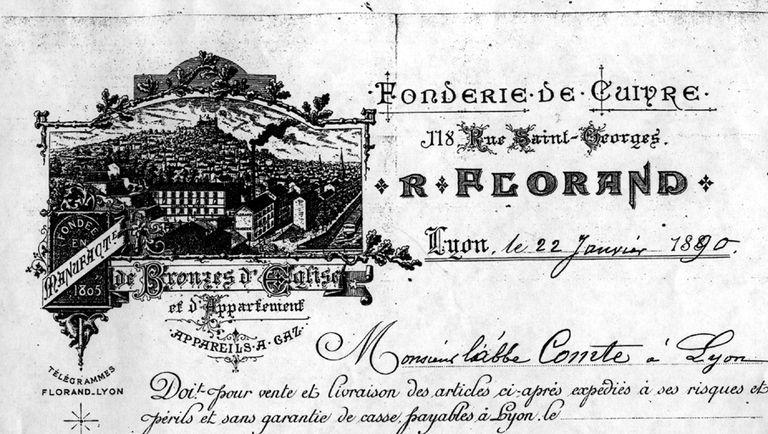 Fonderie·de·Cuivre·
118, Rue Saint-Georges.
R·FLORAND
Lyon, le 22 Janvier 1890.
FONDÉE
EN
1805
MANUFACTE
de Bronzes d'Eglise
et d'Appartement
APPAREILS·A·GAZ
TÉLÉGRAMMES
FLORAND-LYON
Monsieur l'abbe Comte à Lyon
Doit pour vente et livraison des articles ci-après expédiés à ses risques et
périls et sans garantie de casse, payables à Lyon, le